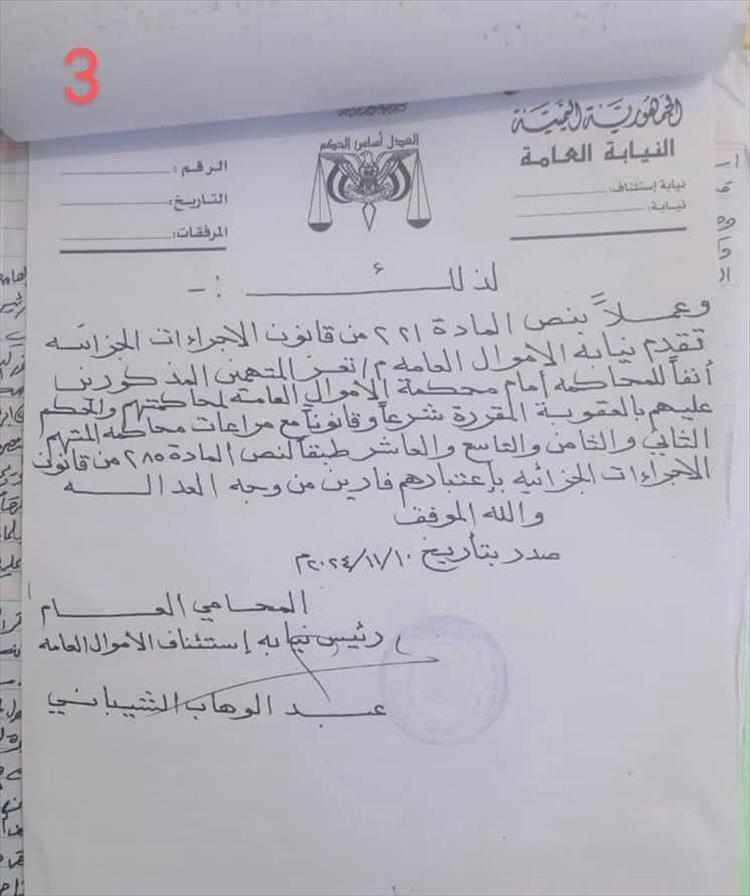 3
الجمهورية اليمنية
النيابة العامة
نيابة إستئناف:
نيابة:
العدل أساس الحكم
الرقم:
التاريخ:
المرفقات:
لذلك :-
وعملاً بنص المادة ٢٢١ من قانون الاجراءات الجزائيه
تقدم نيابه الاموال العامه م/تعز المتهمين المذكورين
أنفاً للمحاكمه أمام محكمة الاموال العامة لمحاكمتهم والحكم
عليهم بالعقوبة المقررة شرعاً وقانوناً مع مراعات محاكمه المتهم
الثاني والثامن والتاسع والعاشر طبقاً لنص المادة ٢٨٥ من قانون
الاجراءات الجزائيه بإعتبارهم فارين من وجه العداله
والله الموفق
صدر بتأريخ ٢٠٢٤/١١/١٠م
المحامي العام
رئيس نيابه إستئناف الاموال العامه
عبد الوهاب الشيباني